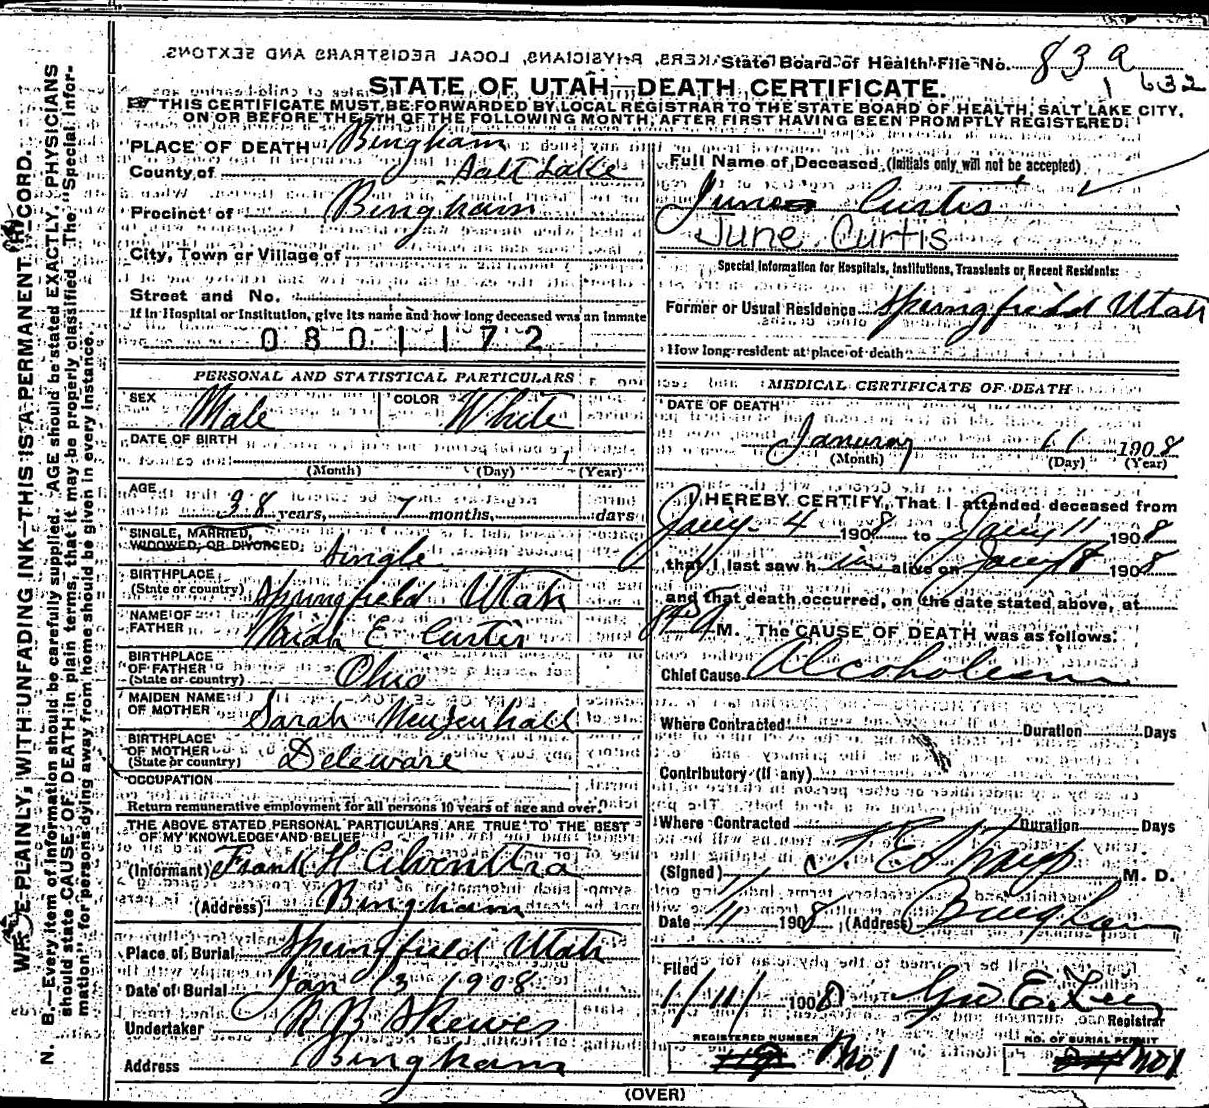 State Board of Health File No. 83 a
1 632
STATE OF UTAH—DEATH CERTIFICATE.
THIS CERTIFICATE MUST BE FORWARDED BY LOCAL REGISTRAR TO THE STATE BOARD OF HEALTH, SALT LAKE CITY,
ON OR BEFORE THE 5TH OF THE FOLLOWING MONTH, AFTER FIRST HAVING BEEN PROMPTLY REGISTERED.
PLACE OF DEATH Bingham
County of Salt Lake
Precinct of Bingham
City, Town or Village of
Street and No.
If in Hospital or Institution, give its name and how long deceased was an inmate
0801172
PERSONAL AND STATISTICAL PARTICULARS
SEX Male COLOR White
DATE OF BIRTH
(Month) (Day) (Year)
AGE
38 years, 7 months, days
SINGLE, MARRIED,
WIDOWED, OR DIVORCED, Single
BIRTHPLACE
(State or country) Springfield Utah
NAME OF
FATHER E. Curtis
BIRTHPLACE
OF FATHER
(State or country) Ohio
MAIDEN NAME
OF MOTHER Sarah
BIRTHPLACE
OF MOTHER
(State or country) Deleware
OCCUPATION
Return remunerative employment for all persons 10 years of age and over.
THE ABOVE STATED PERSONAL PARTICULARS ARE TRUE TO THE BEST
OF MY KNOWLEDGE AND BELIEF
(Informant) Frank H
(Address) Bingham
Place of Burial Springfield Utah
Date of Burial Jan 13 1908
Undertaker R B Skewes
Address Bingham
Full Name of Deceased (Initials only will not be accepted)
June Curtis
June Curtis
Special Information for Hospitals, Institutions, Transients or Recent Residents:
Former or Usual Residence Springfield Utah
How long resident at place of death
MEDICAL CERTIFICATE OF DEATH
DATE OF DEATH
January 11 1908
(Month) (Day) (Year)
I HEREBY CERTIFY, That I attended deceased from
Jany. 4 1908 to Jany 11 1908
that I last saw him alive on Jany 8 1908
and that death occurred, on the date stated above, at
M. The CAUSE OF DEATH was as follows:
Chief Cause Alcoholism
Where Contracted Duration Days
Contributory (if any)
Where Contracted Duration Days
(Signed) M. D.
Date 1/11 1908 (Address) Bingham
Filed
1/11/ 1908 Geo E. Lee
Registrar
REGISTERED NUMBER No 1
NO. OF BURIAL PERMIT No 1
(OVER)
WRITE PLAINLY, WITH UNFADING INK—THIS IS A PERMANENT RECORD.
N. B.—Every item of information should be carefully supplied. AGE should be stated EXACTLY. PHYSICIANS
should state CAUSE OF DEATH in plain terms, that it may be properly classified. The "Special Infor-
mation" for persons dying away from home should be given in every instance.